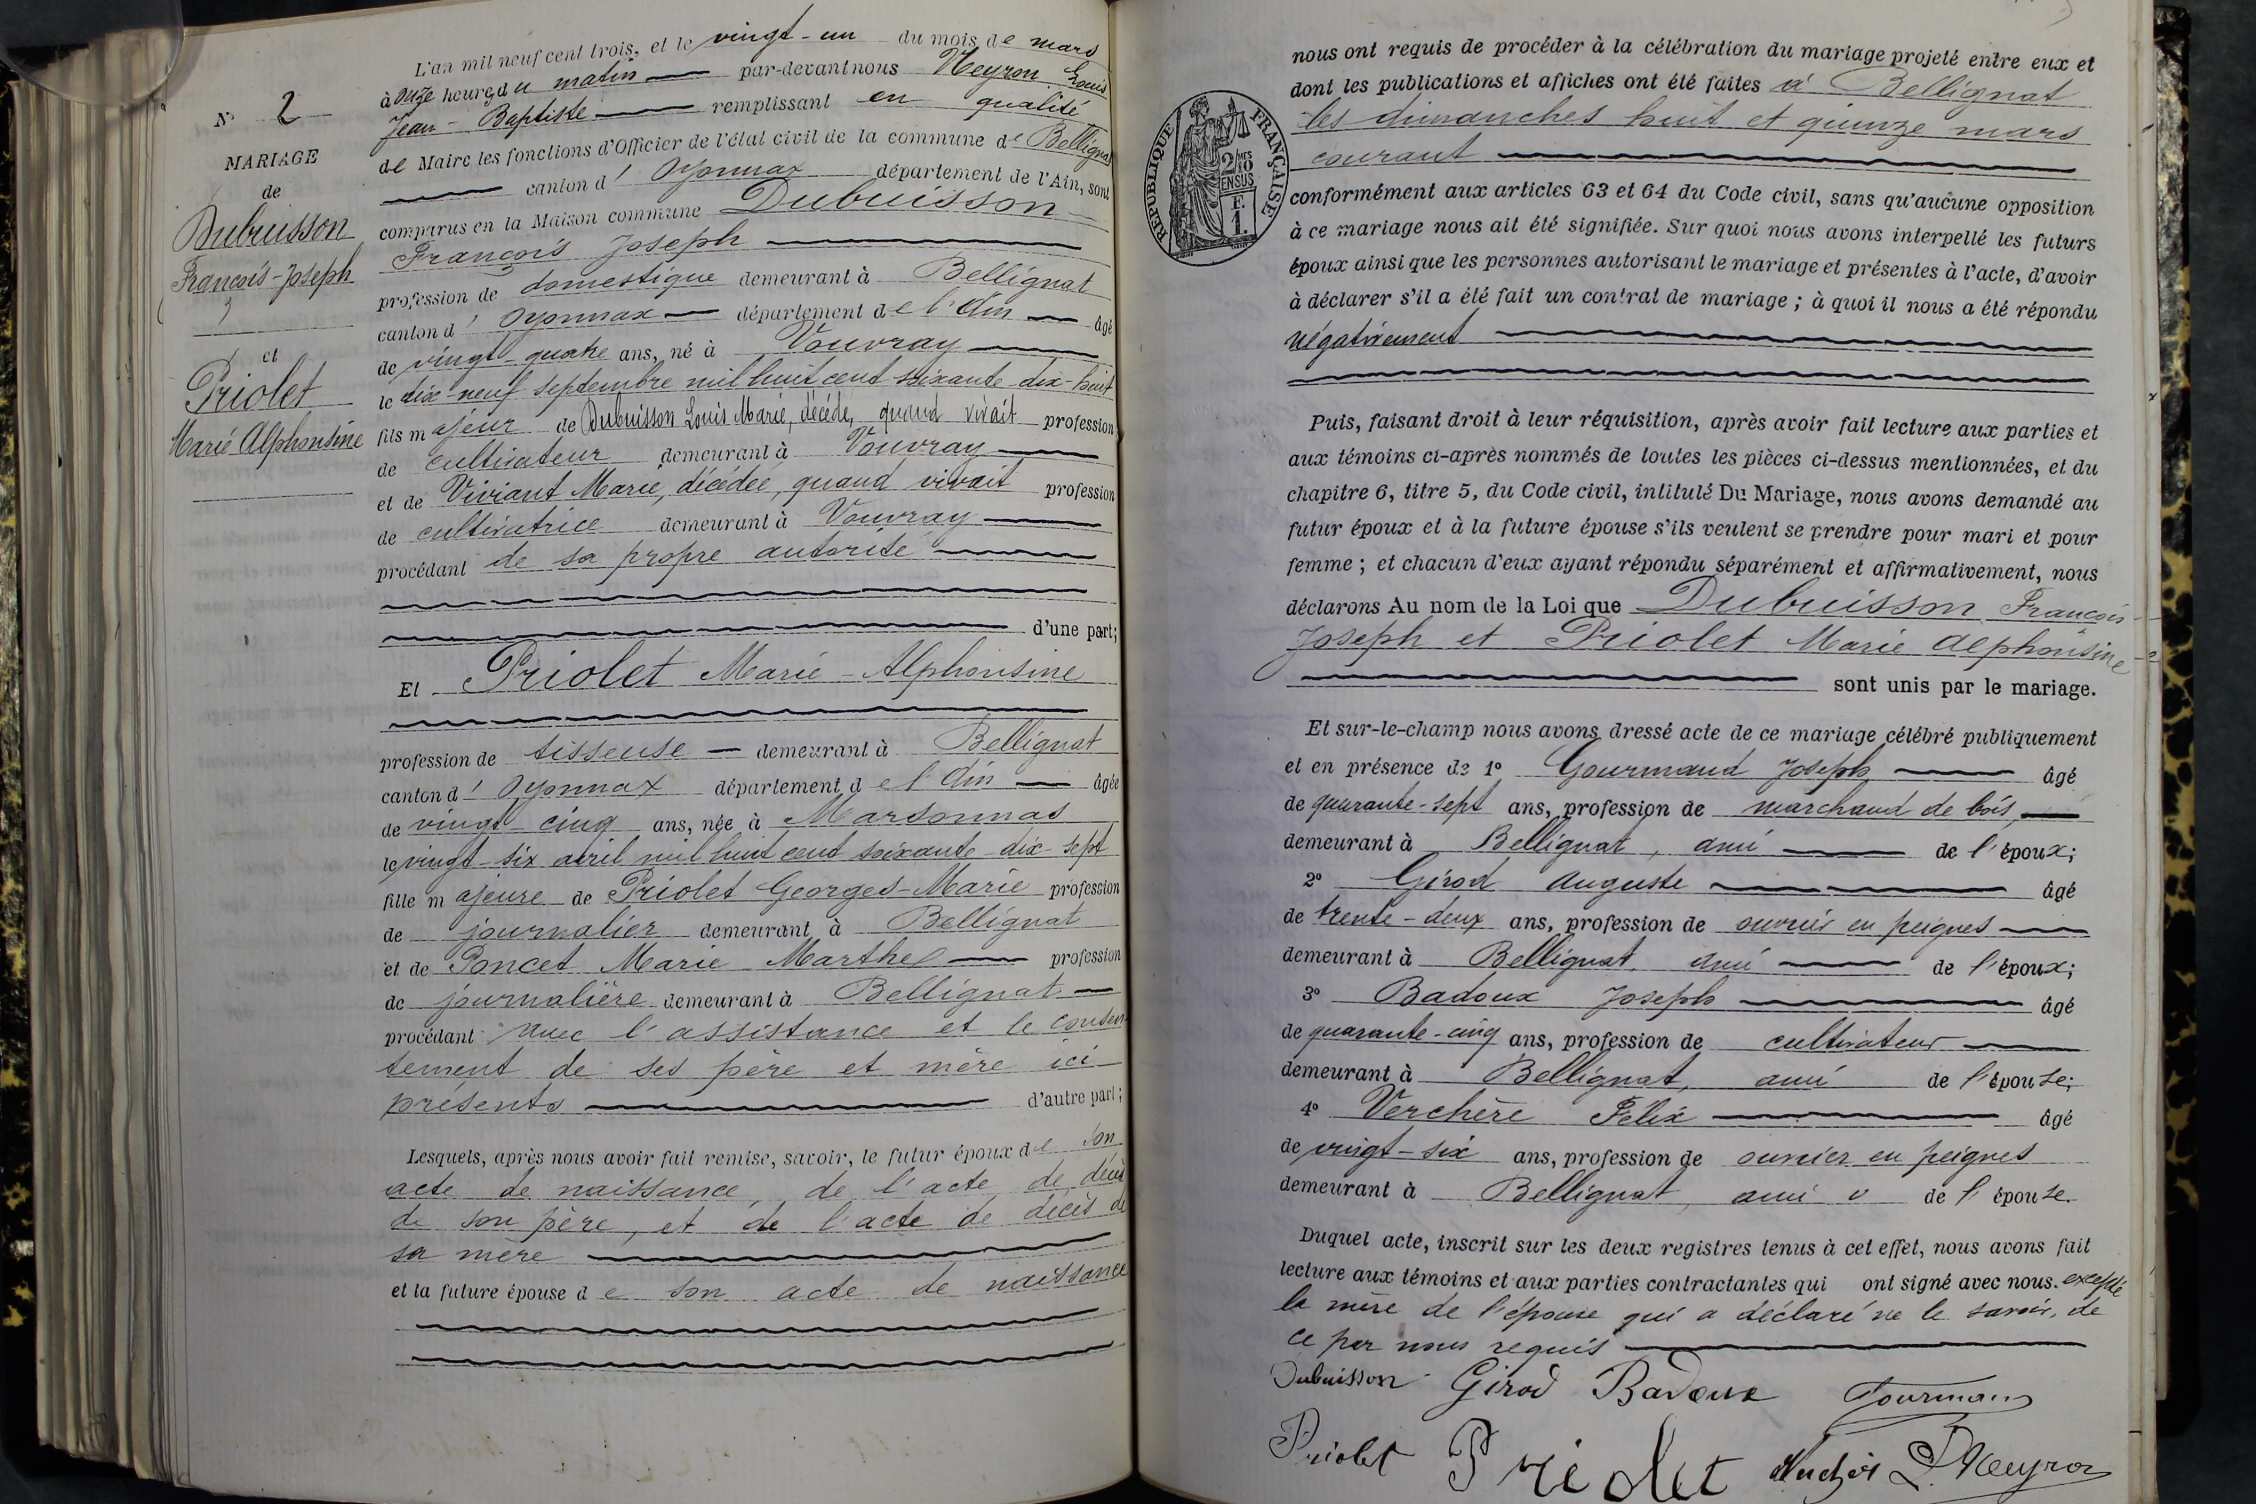 N° 2
MARIAGE
de
Dubuisson
François-Joseph
et
Priolet
Marie Alphonsine
L'an mil neuf cent trois, et le vingt-un du mois de mars
à onze heures du matin par-devant nous Neyron Louis
Jean-Baptiste remplissant en qualité
de Maire les fonctions d'Officier de l'état civil de la commune de Bellignat
canton d' Oyonnax département de l'Ain, sont
comparus en la Maison commune Dubuisson
François Joseph
profession de domestique demeurant à Bellignat
canton d' Oyonnax département de l'Ain âgé
de vingt-quatre ans, né à Vouvray
le dix-neuf septembre mil huit cent soixante-dix-huit
fils majeur de Dubuisson Louis Marie, décédé, quand vivait profession
de cultivateur demeurant à Vouvray
et de Viviant Marie, décédée, quand vivait profession
de cultivatrice demeurant à Vouvray
procédant de sa propre autorité
d'une part;
Et Priolet Marie-Alphonsine
profession de tisseuse demeurant à Bellignat
canton d' Oyonnax département de l'Ain âgée
de vingt-cinq ans, née à Marsonnas
le vingt-six avril mil huit cent soixante-dix-sept
fille majeure de Priolet Georges-Marie profession
de journalier demeurant à Bellignat
et de Poncet Marie Marthe profession
de journalière demeurant à Bellignat
procédant avec l'assistance et le consen
tement de ses père et mère ici
présents d'autre part;
Lesquels, après nous avoir fait remise, savoir, le futur époux de son
acte de naissance, de l'acte de décès
de son père, et de l'acte de décès de
sa mère
et la future épouse de son acte de naissance
RÉPUBLIQUE FRANÇAISE
2/10MES
EN SUS
F.
1.
nous ont requis de procéder à la célébration du mariage projeté entre eux et
dont les publications et affiches ont été faites à Bellignat
les dimanches huit et quinze mars
courant
conformément aux articles 63 et 64 du Code civil, sans qu'aucune opposition
à ce mariage nous ait été signifiée. Sur quoi nous avons interpellé les futurs
époux ainsi que les personnes autorisant le mariage et présentes à l'acte, d'avoir
à déclarer s'il a été fait un contrat de mariage ; à quoi il nous a été répondu
négativement
Puis, faisant droit à leur réquisition, après avoir fait lecture aux parties et
aux témoins ci-après nommés de toutes les pièces ci-dessus mentionnées, et du
chapitre 6, titre 5, du Code civil, intitulé Du Mariage, nous avons demandé au
futur époux et à la future épouse s'ils veulent se prendre pour mari et pour
femme ; et chacun d'eux ayant répondu séparément et affirmativement, nous
déclarons Au nom de la Loi que Dubuisson François
Joseph et Priolet Marie Alphonsine
sont unis par le mariage.
Et sur-le-champ nous avons dressé acte de ce mariage célébré publiquement
et en présence de 1° Gourmand Joseph âgé
de quarante-sept ans, profession de marchand de bois,
demeurant à Bellignat, ami de l'époux;
2° Girod Auguste âgé
de trente-deux ans, profession de ouvrier en peignes
demeurant à Bellignat, ami de l'époux;
3° Badoux Joseph âgé
de quarante-cinq ans, profession de cultivateur
demeurant à Bellignat, ami de l'épouse;
4° Verchère Félix âgé
de vingt-six ans, profession de ouvrier en peignes
demeurant à Bellignat, ami de l'épouse.
Duquel acte, inscrit sur les deux registres tenus à cet effet, nous avons fait
lecture aux témoins et aux parties contractantes qui ont signé avec nous. excepté
la mère de l'épouse qui a déclaré ne le savoir, de
ce par nous requis
Dubuisson Girod Badoux Gourmand
Priolet Priolet Neyron